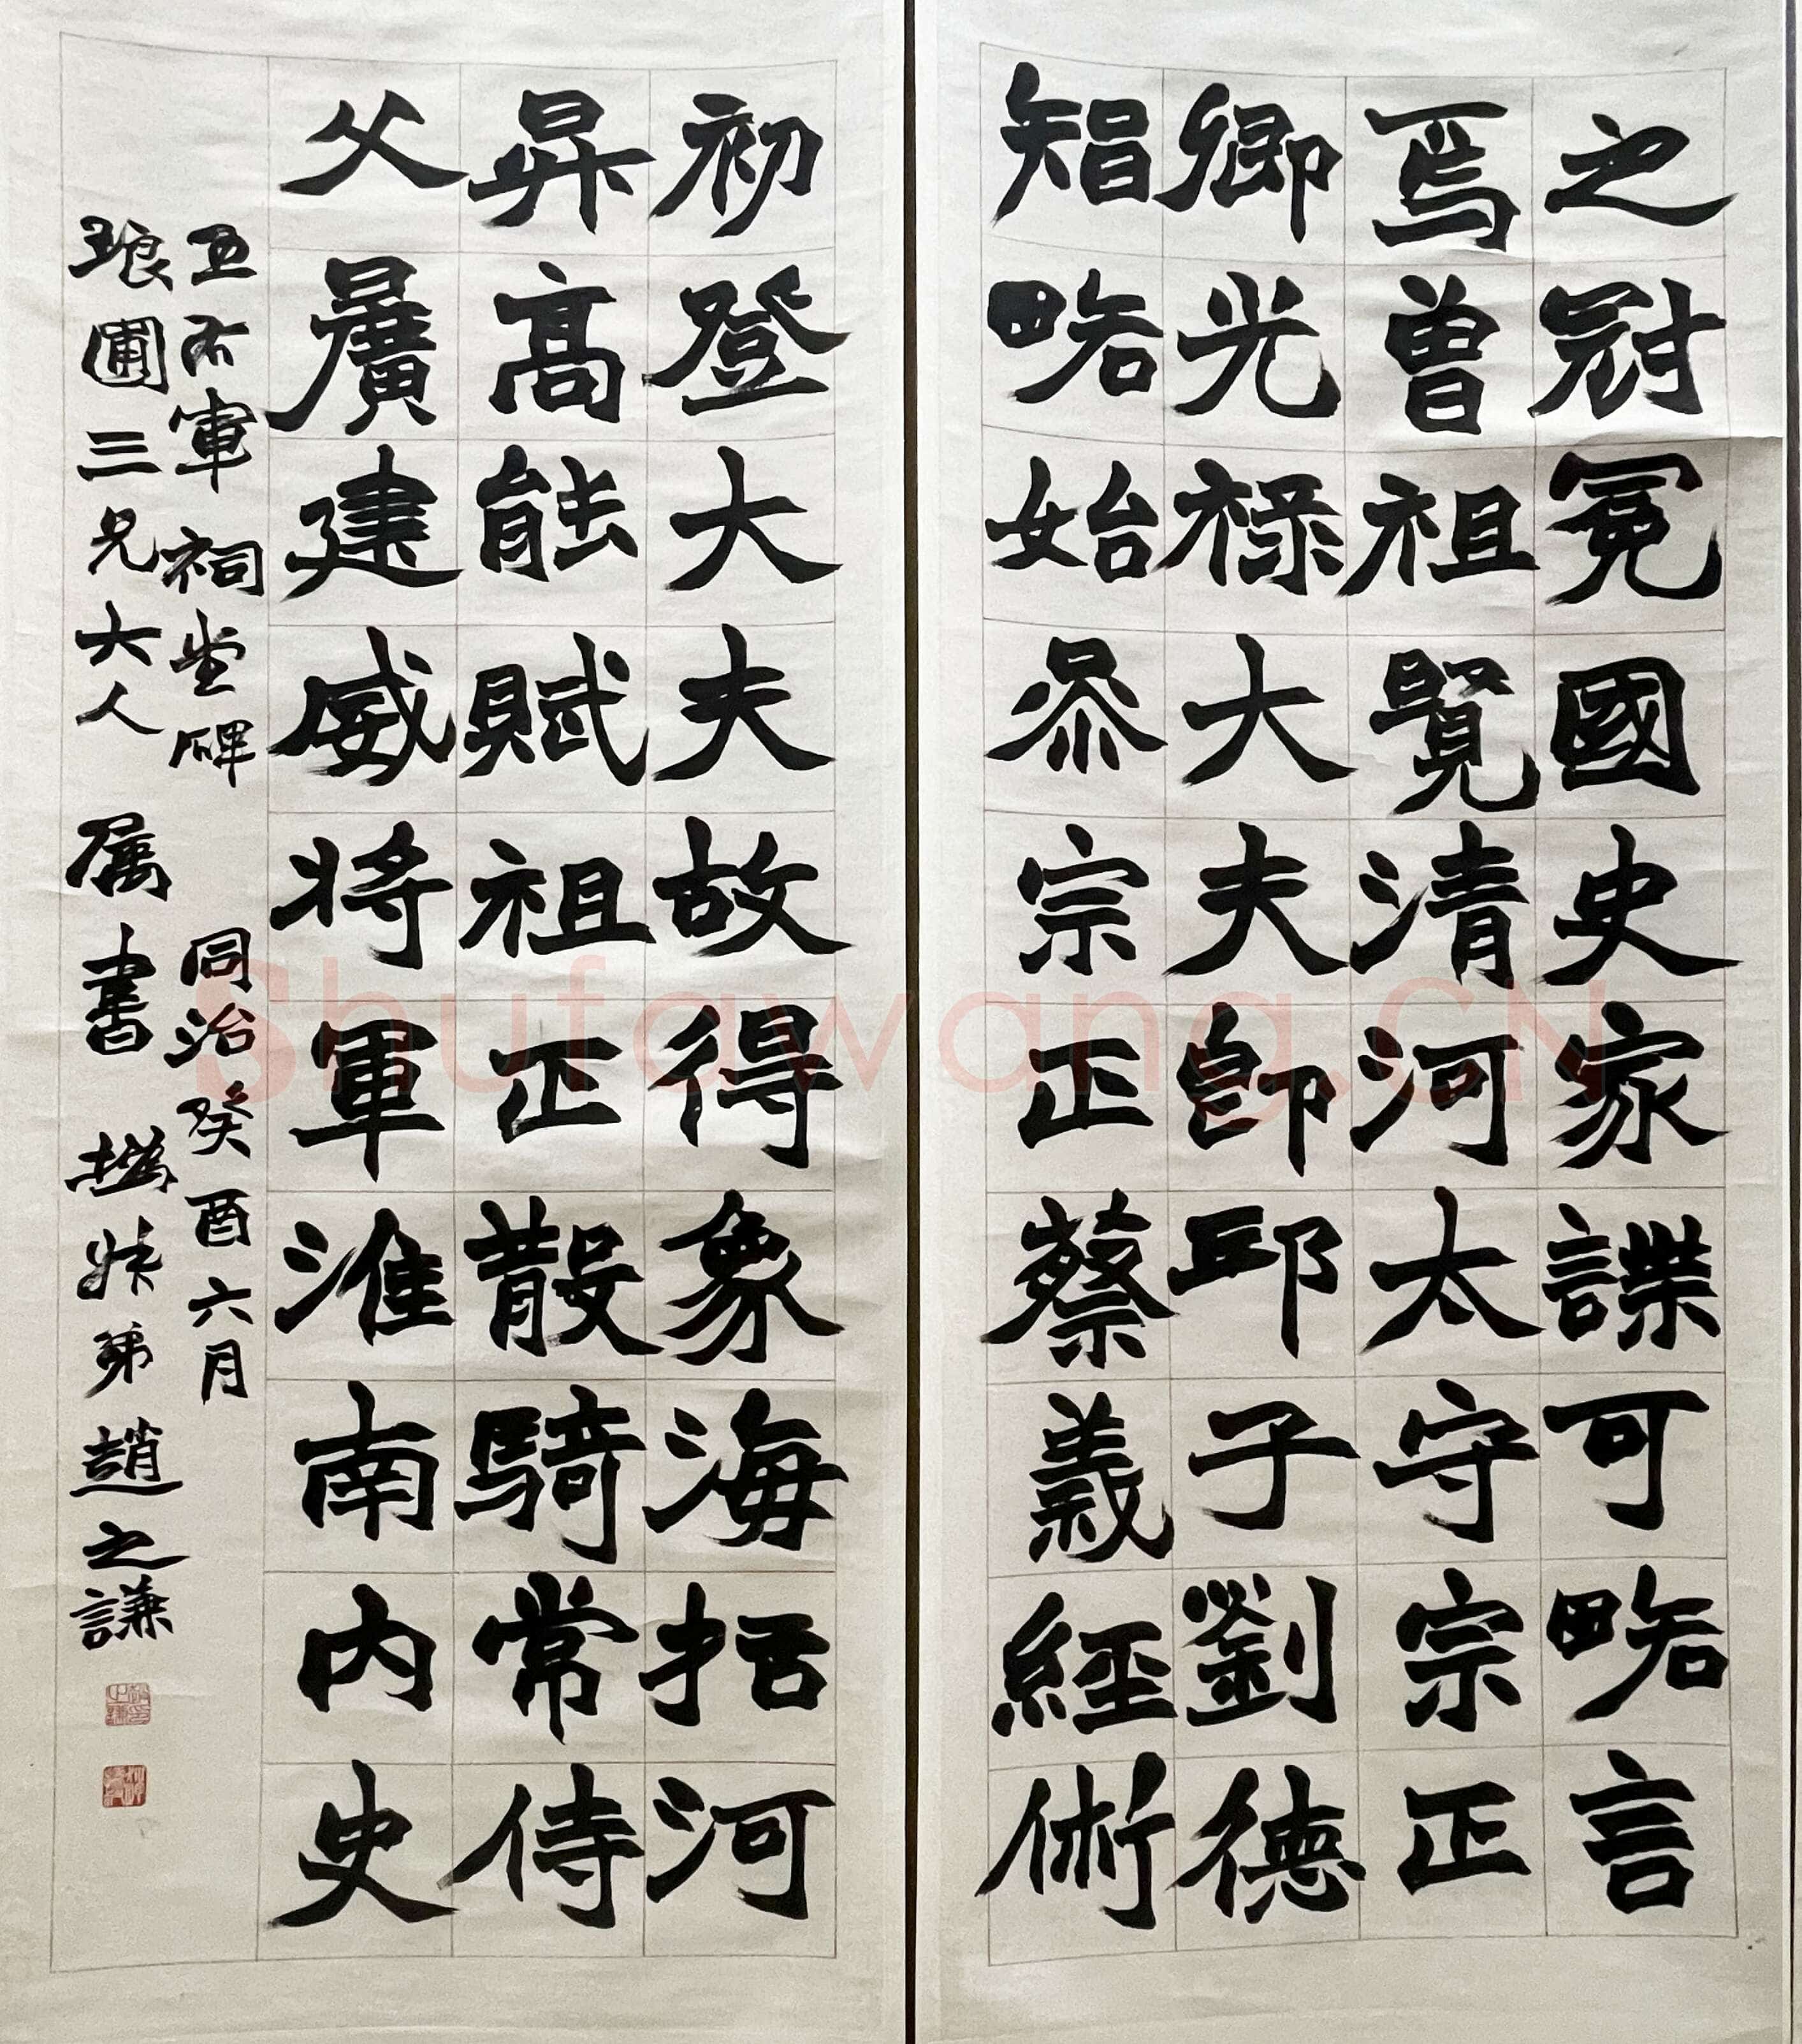 之冠冕國史家諜可略言
焉曾祖賢清河太守宗正
卿光禄大夫即邱子劉德
智略始叅宗正蔡義經術
初登大夫故得象海括河
昇高能賦祖正散騎常侍
父廣建威將軍淮南内史
軍祠堂碑
同治癸酉六月
琅圃三兄大人 属書 撝叔弟趙之謙
Shufawang.CN